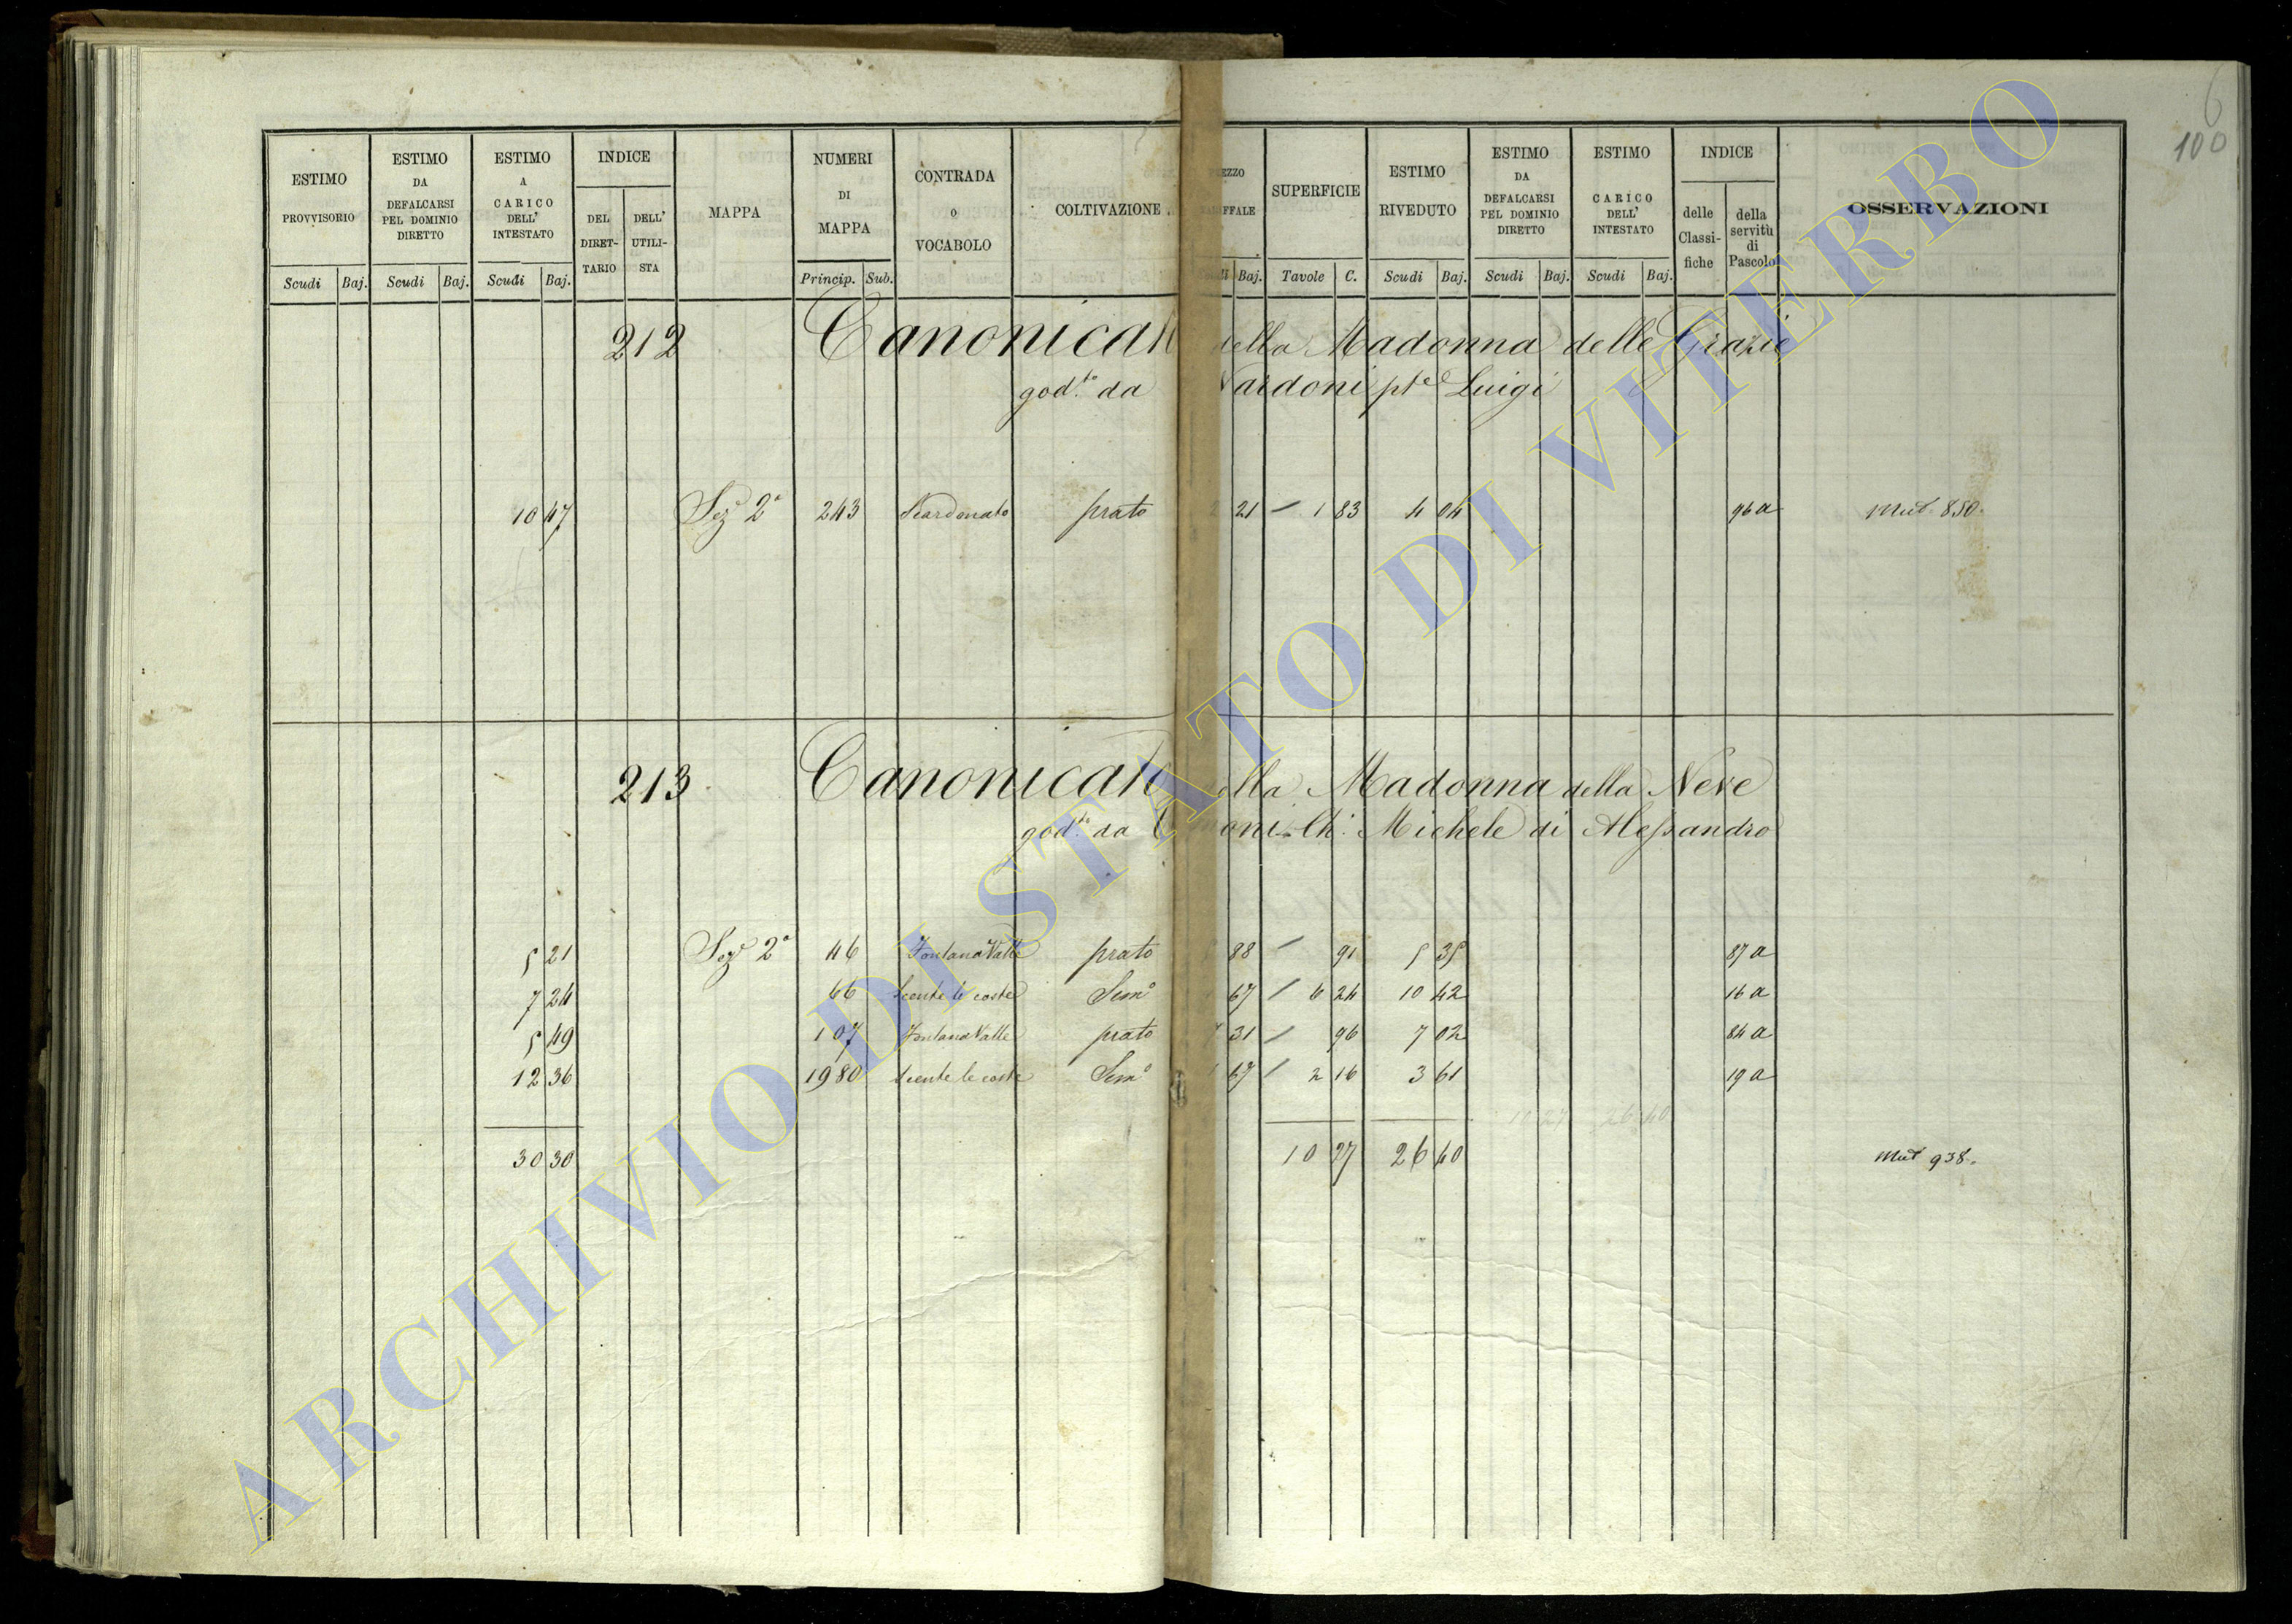 6
100
ESTIMO PROVVISORIO
ESTIMO DA DEFALCARSI PEL DOMINIO DIRETTO
ESTIMO A CARICO DELL' INTESTATO
INDICE
DEL DIRETTARIO
DELL' UTILISTA
MAPPA
NUMERI DI MAPPA
CONTRADA O VOCABOLO
COLTIVAZIONE
SUPERFICIE
ESTIMO RIVEDUTO
ESTIMO DA DEFALCARSI PEL DOMINIO DIRETTO
ESTIMO CARICO DELL' INTESTATO
INDICE
delle Classifiche
della servitù di Pascolo
OSSERVAZIONI
Scudi Baj. Scudi Baj. Scudi Baj. Princip. Sub. Baj. Tavole C. Scudi Baj. Scudi Baj. Scudi Baj.
212 Canonicato della Madonna delle Grazie
god.to da Nardoni pte Luigi
10 47 Sez.e 2a 243 prato 21 / 1 83 4 04 96 a Mut. 850
213 Canonicato della Madonna della Neve
god.to da moni Ch. Michele di Alessandro
5 21 Sez.e 2a 46 Fontana Valle prato 88 / 91 5 35 87 a
7 24 66 le coste Sem.o 67 / 6 24 10 42 16 a
5 49 107 Fontana Valle prato 31 / 96 7 02 84 a
12 36 1980 le coste Sem.o 67 / 2 16 3 61 19 a
10 27 26 40
30 30 10 27 26 40 Mut 938
ARCHIVIO DI STATO DI VITERBO